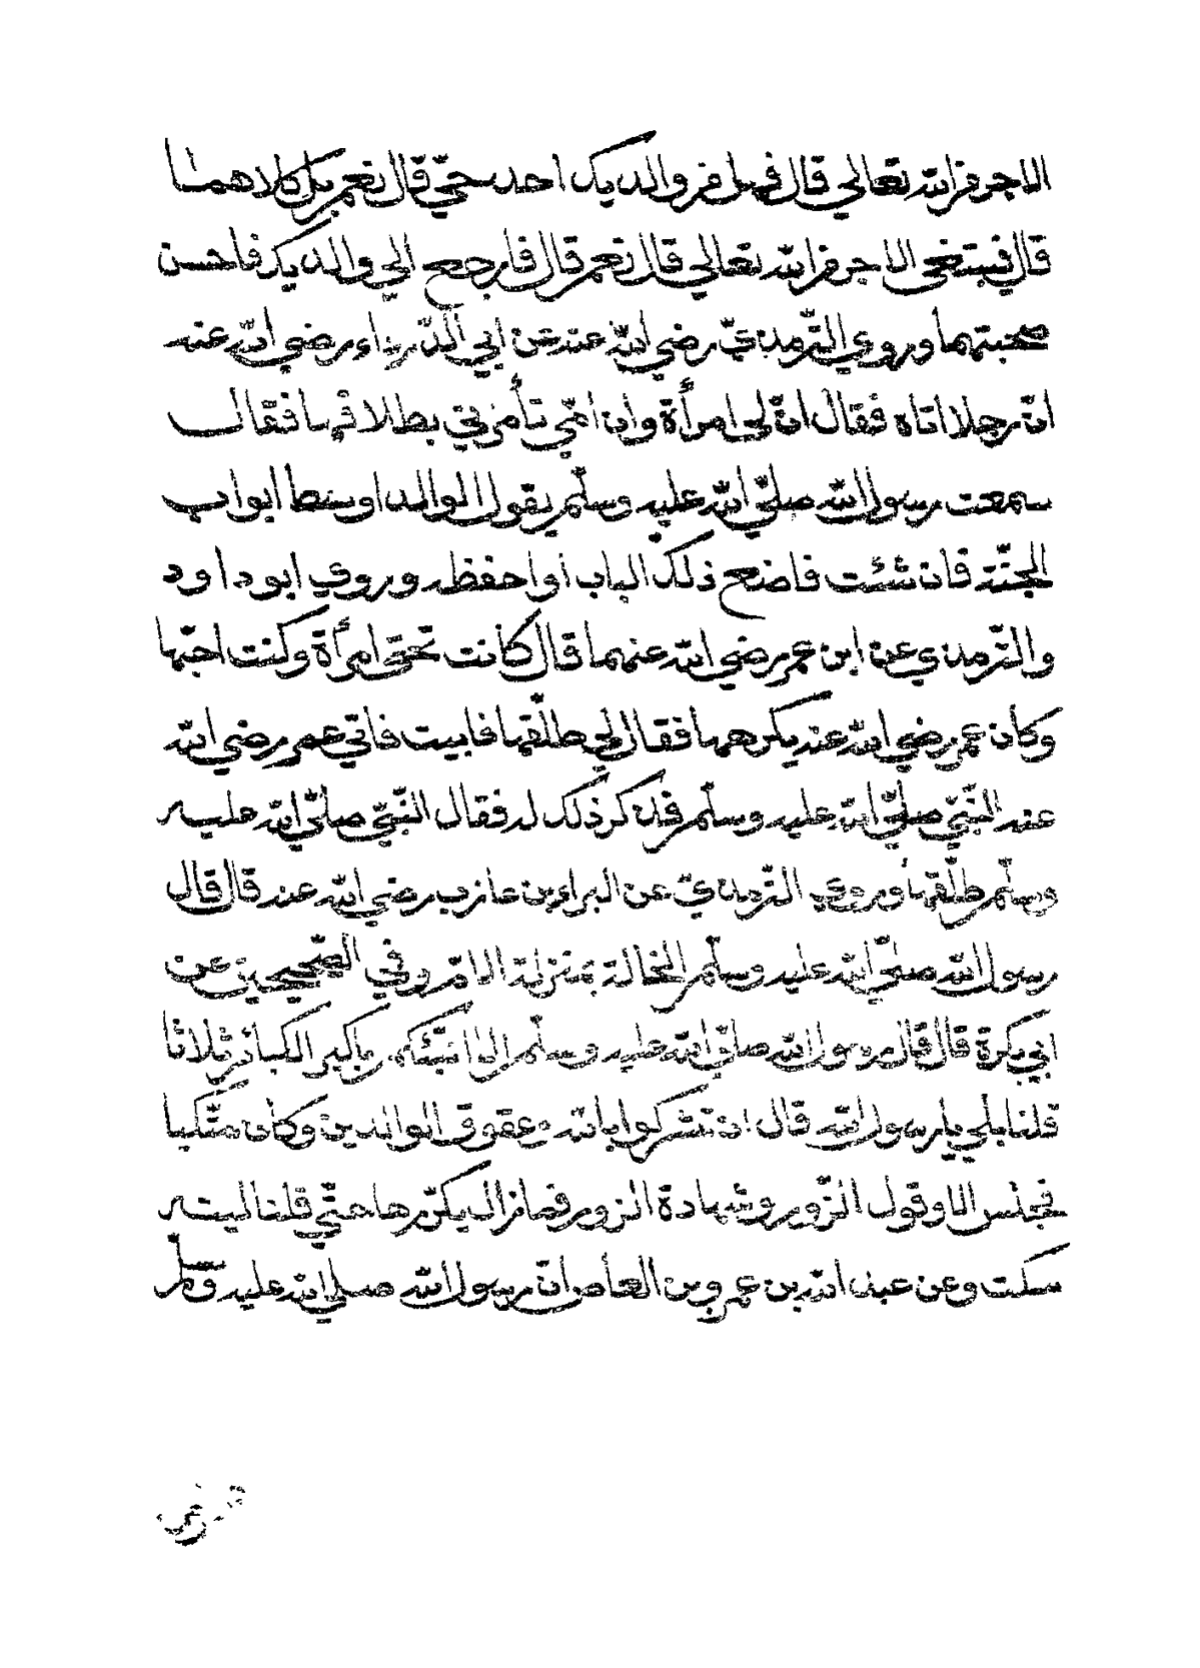 الاجر من الله تعالي قال فهل من والديك احد حيّ قال نعم بل كلاهما
قال فتبتغي الاجر من الله تعالي قال نعم قال فارجع الي والديك فاحسن
صحبتهما وروي التّرمذيّ رضي الله عنه عن ابي الدّرداء رضي الله عنه
انّ رجلا اتاه فقال انّ لي امرأة وان امّي تأمرني بطلاقها فقال
سمعت رسول الله صلّي الله عليه وسلّم يقول الوالد اوسط ابواب
الجنّة فان شئت فاضع ذلك الباب أو احفظه وروي ابو داود
والتّرمذي عن ابن عمر رضي الله عنهما قال كانت تحتي امرأة وكنت احبّها
وكان عمر رضي الله عنه يكرهها فقال لي طلّقها فابيت فاتي عمر رضي الله
عنه النّبيّ صلّي الله عليه وسلّم فذكر ذلك له فقال النّبيّ صلّي الله عليه
وسلّم طلّقها وروي التّرمذيّ عن البراء بن عازب رضي الله عنه قال قال
رسول الله صلّي الله عليه وسلّم الخالة بمنزلة الامّ وفي الصّحيحين عن
ابي بكرة قال قال رسول الله صلّي الله عليه وسلّم الا انبّئكم باكبر الكبائر ثلاثا
قلنا بلي يا رسول الله قال ان تشركوا بالله وعقوق الوالدين وكان متّكيا
فجلس الا وقول الزّور وشهادة الزور فما زال يكرّرها حتّي قلنا ليته
سكت وعن عبد الله بن عمرو بن العاص انّ رسول الله صلي الله عليه وسلّم